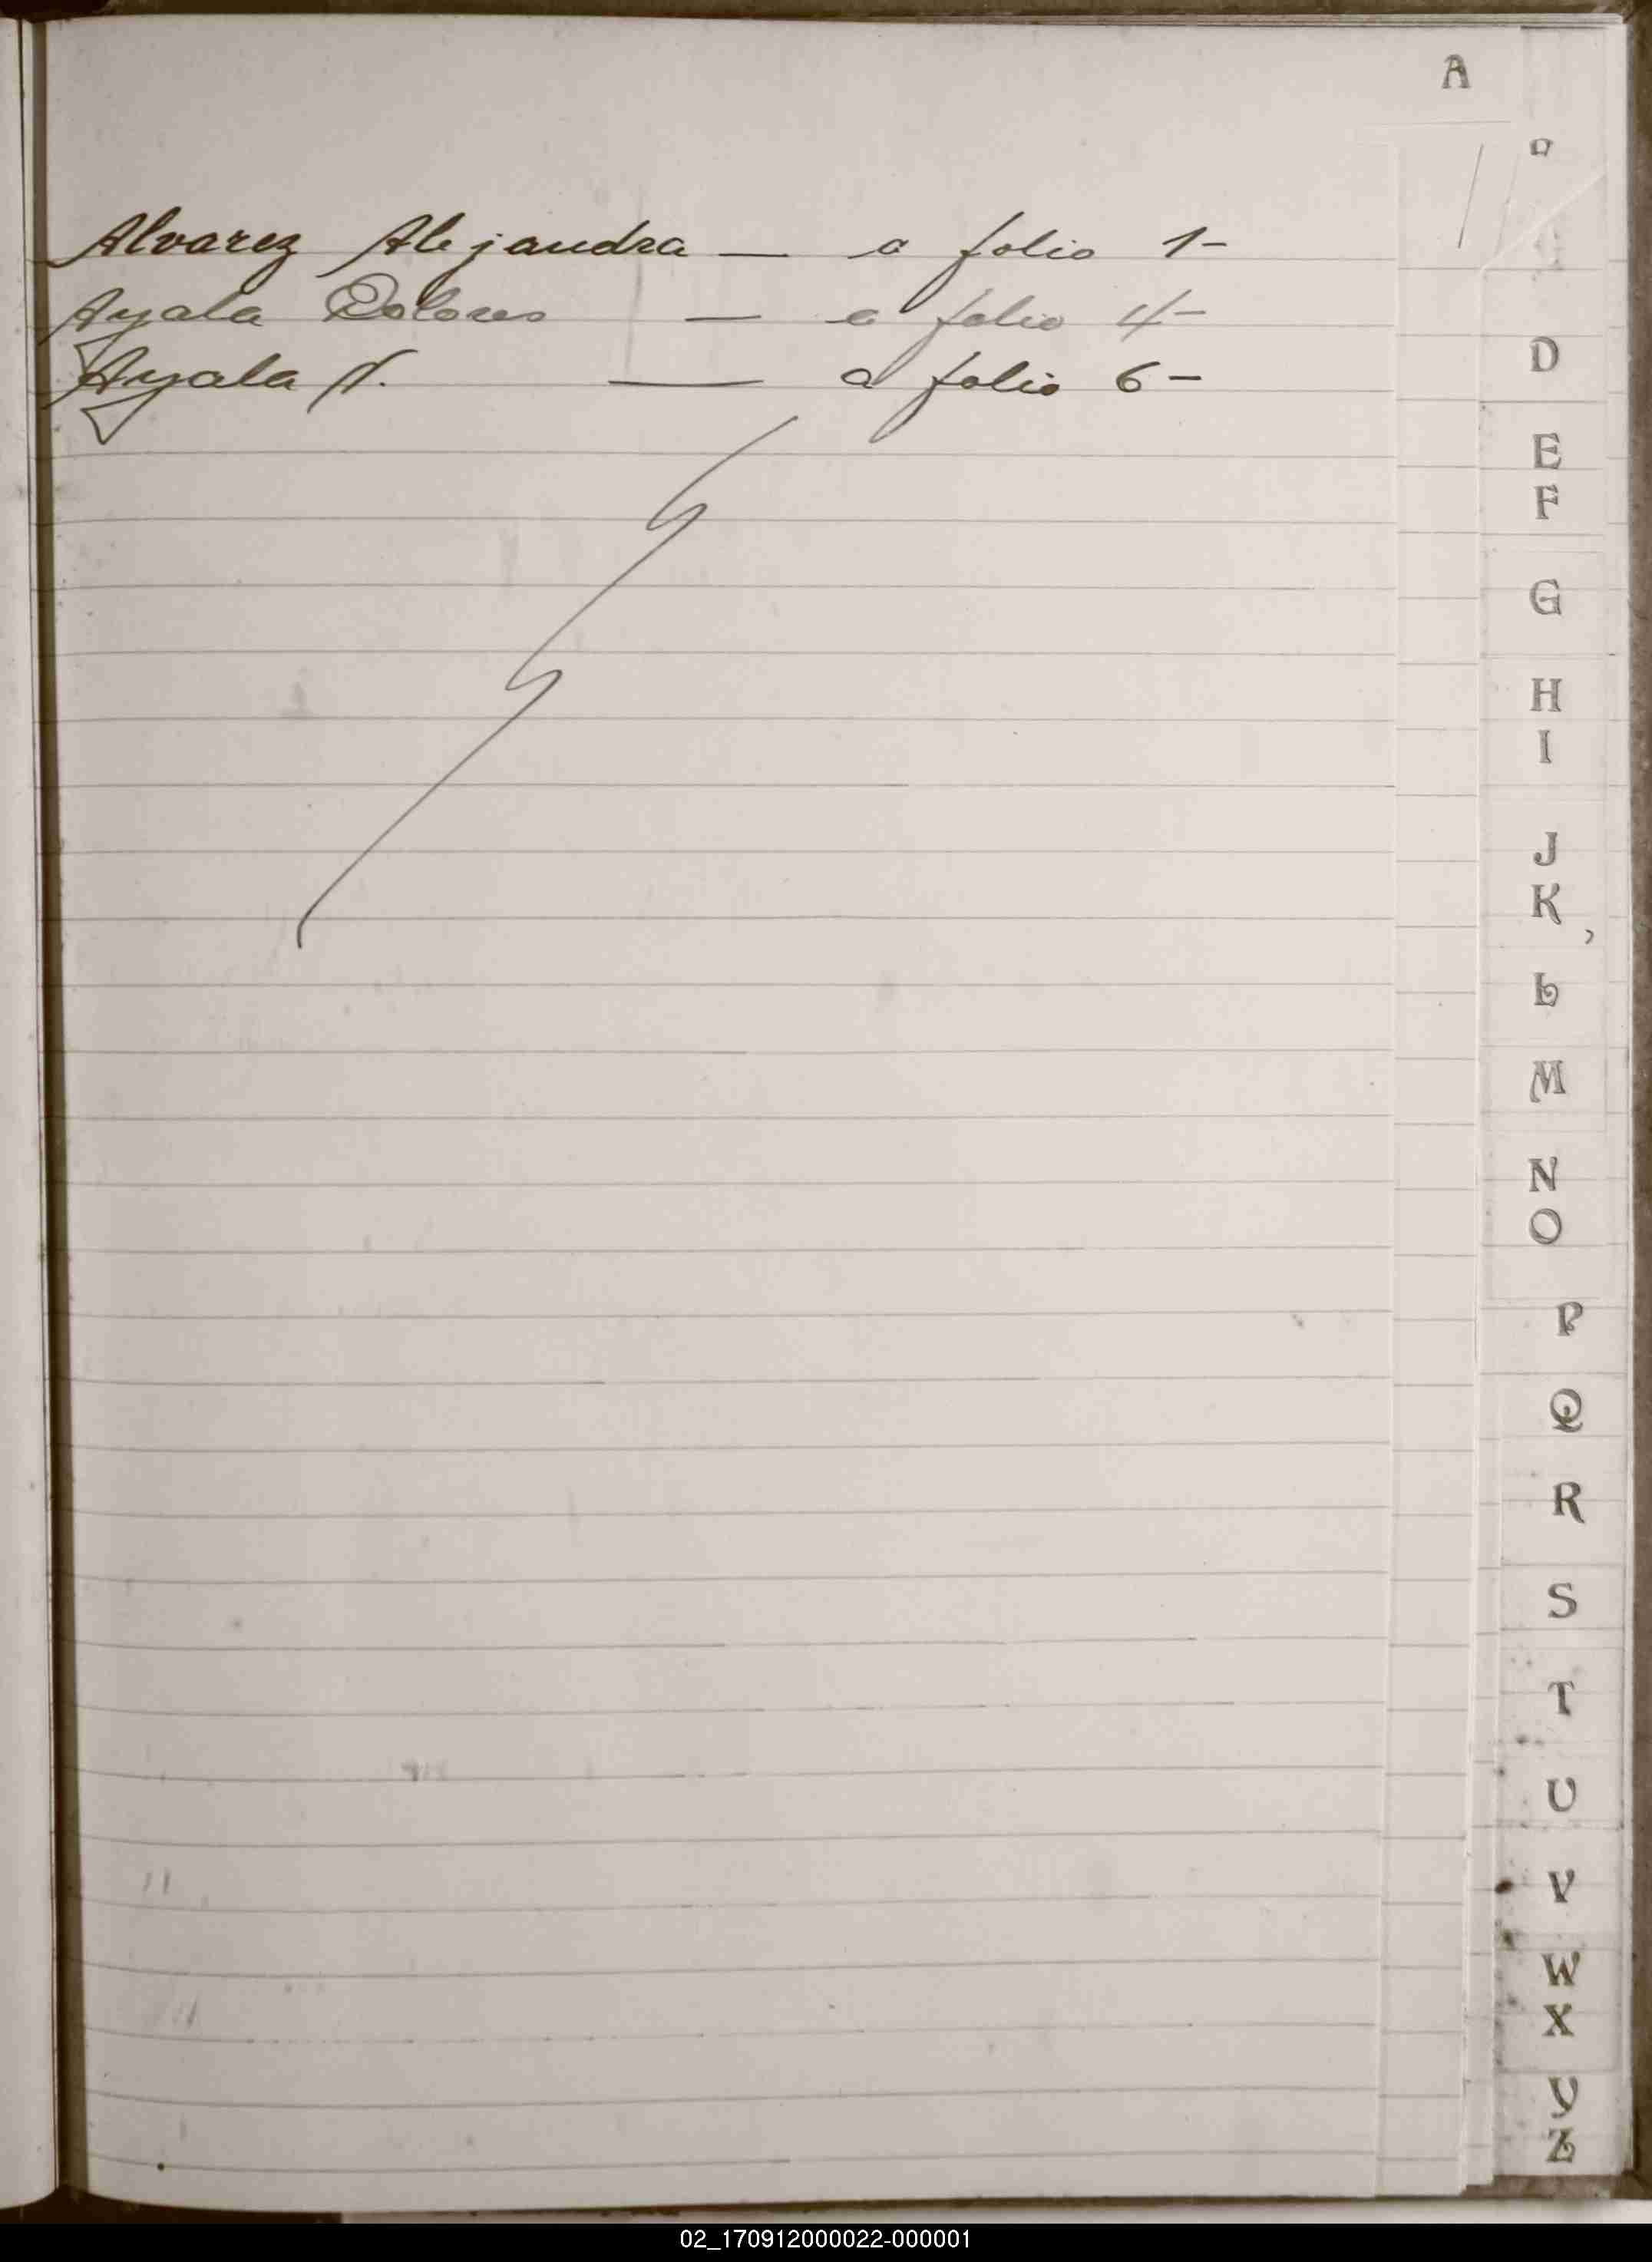 A
Alvarez Alejandra — a folio 1-
Ayala Dolores — a folio 4-
Ayala N. — a folio 6-
D
E
F
G
H
I
J
K
L
M
N
O
P
Q
R
S
T
U
V
W
X
Y
Z
02_170912000022-000001